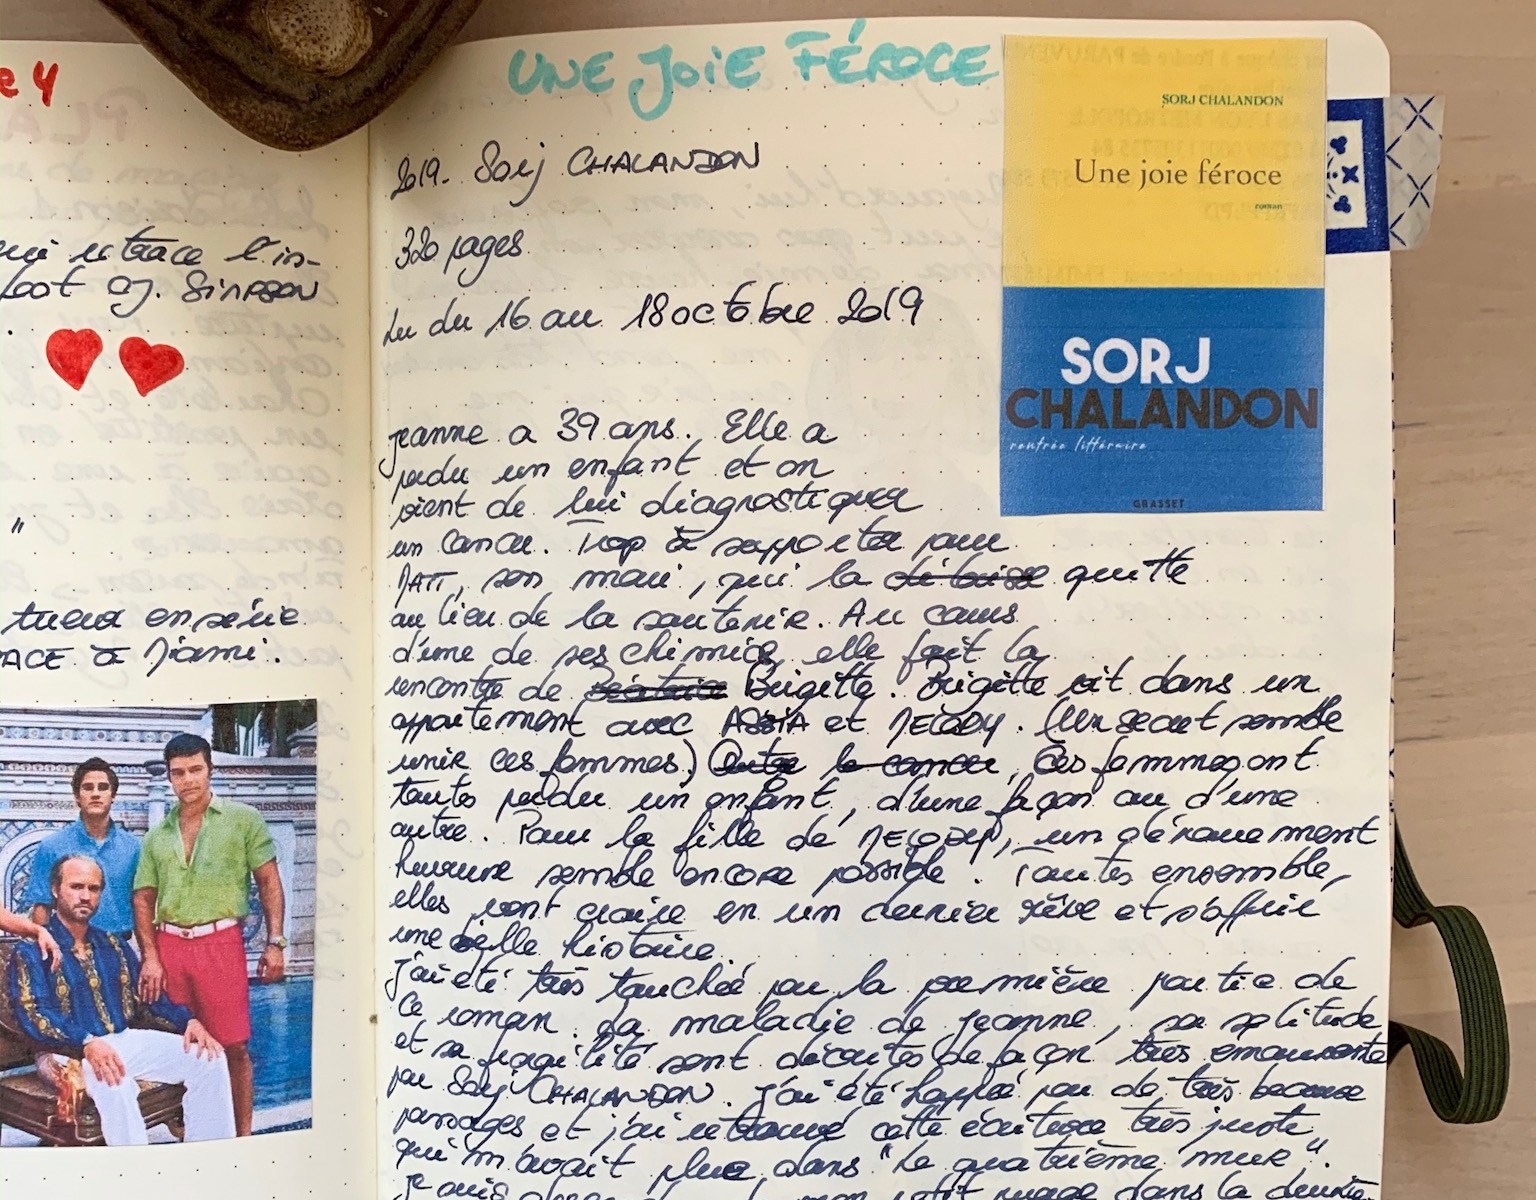 e 4
l'in-
OJ. SIMPSON
"
tueur en série
à Miami.
UNE JOIE FÉROCE
2019. Sorj CHALANDON
320 pages
Lu du 16 au 18 octobre 2019
SORJ CHALANDON
Une joie féroce
roman
SORJ
CHALANDON
rentrée littéraire
GRASSET
Jeanne a 39 ans. Elle a
perdu un enfant et on
vient de lui diagnostiquer
un cancer. Trop à supporter pour
MATT, son mari, qui la quitte
au lieu de la soutenir. Au cours
d'une de ses chimios, elle fait la
rencontre de Brigitte. Brigitte vit dans un
appartement avec ASSIA et MELODY. (Un secret semble
unir ces femmes) Ces femmes ont
toutes perdu un enfant, d'une façon ou d'une
autre. Pour la fille de MELODY, un dénouement
heureux semble encore possible. Toutes ensemble,
elles vont croire en un dernier rêve et s'offrir
une belle histoire.
J'ai été très touchée par la première partie de
ce roman. La maladie de Jeanne, sa solitude
et sa fragilité sont décrites de façon très émouvante
par Sorj CHALANDON. J'ai été happée par de très beaux
passages et j'ai retrouvé cette écriture très juste
qui m'avait plu dans "Le quatrième mur".
dans la